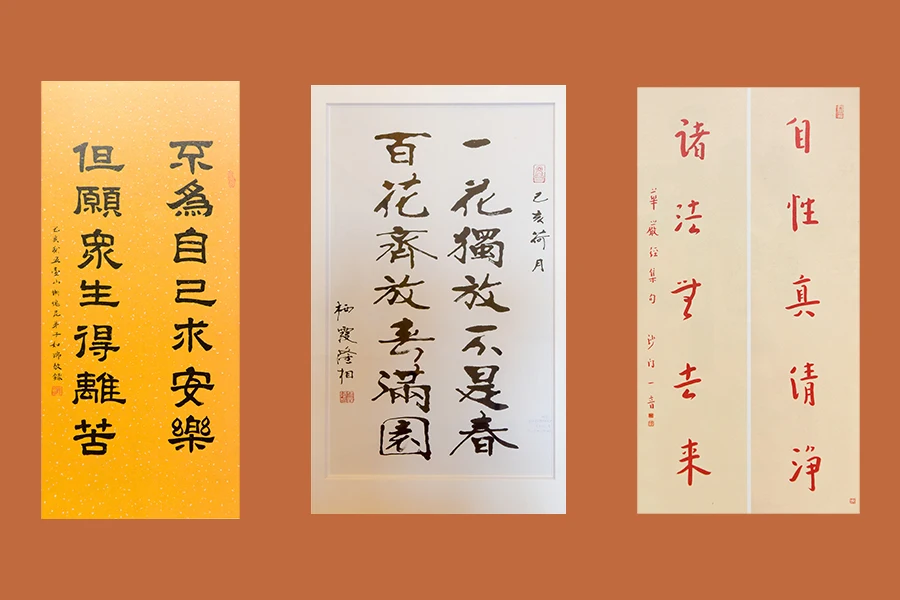 不為自己求安樂
但願眾生得離苦
己亥荷月
一花獨放不是春
百花齊放春滿園
栖霞隆相
自性真清净
诸法無去来
華嚴经集句 沙门一音